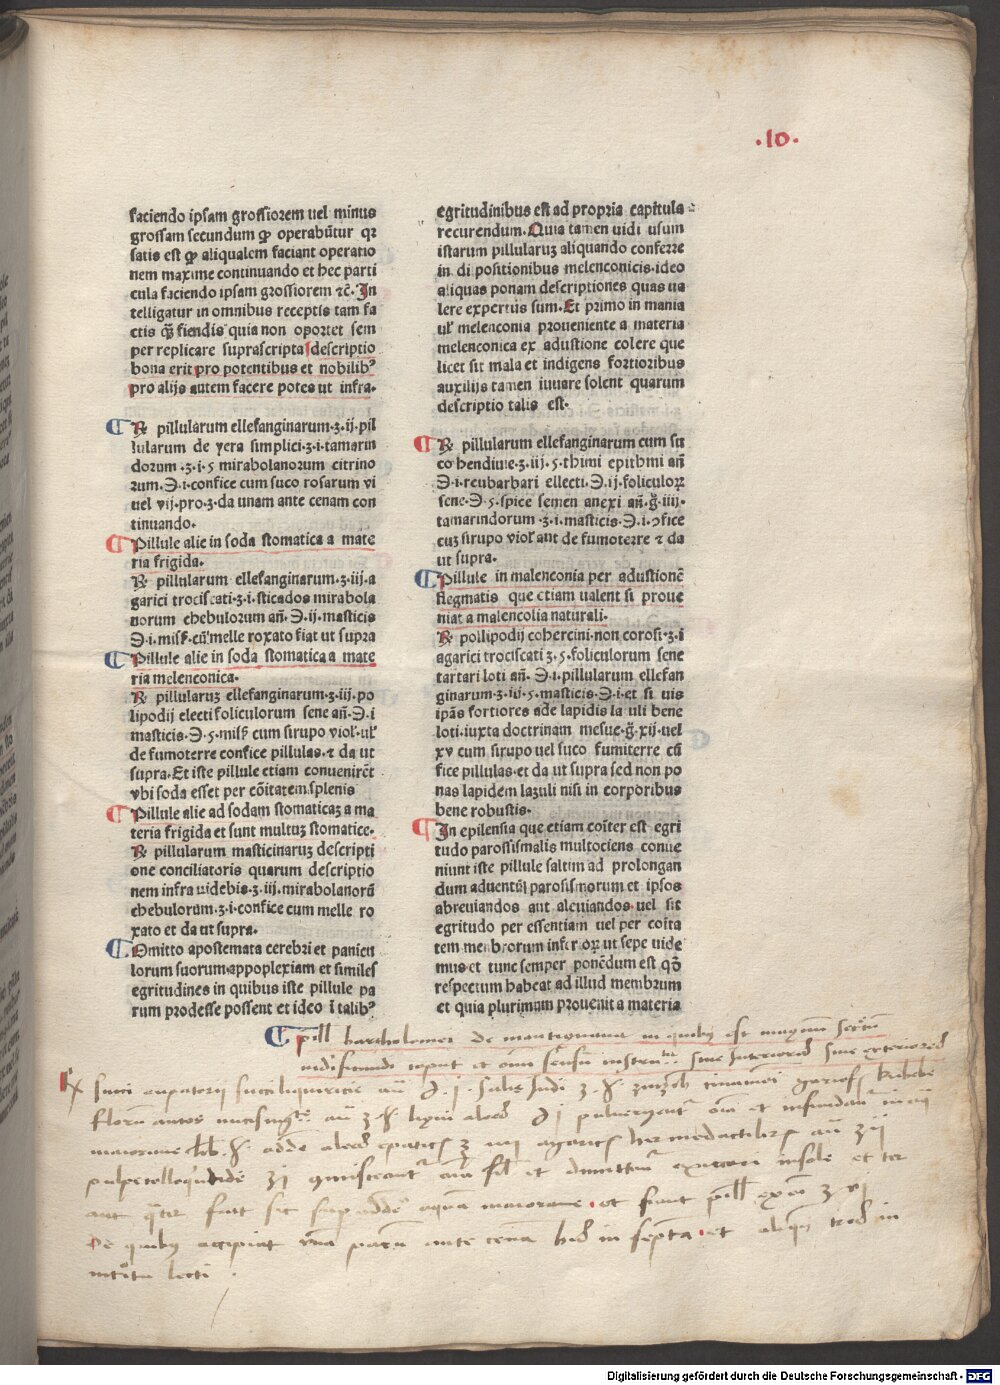 .10.
faciendo ipsam grossiorem uel minus
grossam secundum ꝙ operabũtur qꝛ
satis est ꝙ aliqualem faciant operatio
nem maxime continuando et hec parti
cula faciendo ipsam grossiorem ⁊č. In
telligatur in omnibus receptis tam fa
ctis ꝙ̃ fiendis quia non oportet sem
per replicare suprascripta descriptio
bona erit pro potentibus et nobilibꝰ
pro alijs autem facere potes ut infra.
℞ pillularum ellefanginarum.ʒ.ij.pil
lularum de yera simplici.ʒ.i.tamarin
dorum.ʒ.i.5 mirabolanorum citrino
ꝛum.℈.i.confice cum suco rosarum vi
uel vij.pro.ʒ.da unam ante cenam con
tinuando.
Pillule alie in soda stomatica a mate
ria frigida.
℞ pillularum ellefanginarum.ʒ.iij.a
garici trociscati.ʒ.i.sticados mirabola
norum chebulorum añ.℈.ij.masticis
℈.i.misẜ.cũ melle roxato fiat ut supra
Pillule alie in soda stomatica a mate
ria melenconica.
℞ pillularuʒ ellefanginarum.ʒ.iij.po
lipodij electi foliculorum sene añ.℈.i
masticis.℈.5.misẜ cum sirupo viol.ul̕
de fumoterre confice pillulas.⁊ da ut
supra.Et iste pillule etiam conuenirẽt
vbi soda esset per cõitatem splenis
Pillule alie ad sodam stomaticaʒ a ma
teria frigida et sunt multuʒ stomatice.
℞ pillularum masticinaruʒ descripti
one conciliatoris quarum descriptio
nem infra uidebis.ʒ.iij.mirabolanorũ
chebulorum.ʒ.i.confice cum melle ro
xato et da ut supra.
Omitto apostemata cerebri et panicu
lorum suorum.appoplexiam et similes
egritudines in quibus iste pillule pa
rum prodesse possent et ideo ĩ talibꝰ
egritudinibus est ad propria capitula
recurendum.Quia tamen uidi usum
istarum pillularuʒ aliquando conferre
in di positionibus melenconicis.ideo
aliquas ponam descriptiones quas ua
lere expertus sum.Et primo in mania
ul̕ melenconia proueniente a materia
melenconica ex adustione colere que
licet sit mala et indigens fortioribus
auxilijs tamen iuuare solent quarum
descriptio talis est.
℞ pillularum ellefanginarum cum su
co bendiuie.ʒ.iij.5.thimi epithmi añ
℈.i.reubarbari ellecti.℈.ij.foliculoꝝ
sene.℈.5.spice semen anexi añ.g̃.iiij.
tamarindorum.ʒ.i.masticis.℈.i.ↄfice
cuʒ sirupo viol̕ aut de fumoterre ⁊ da
ut supra.
Pillule in malenconia per adustionẽ
flegmatis que etiam ualent si proue
niat a malencolia naturali.
℞ pollipodij cohercini.non corosi.ʒ.i
agarici trociscati ʒ.5.foliculorum sene
tartari loti añ.℈.i.pillularum ellefan
ginarum.ʒ.iij.5.masticis.℈.i.et si uis
ipãs fortiores ade lapidis la uli bene
loti.iuxta doctrinam mesue.g̃.xij.uel
xv cum sirupo uel suco fumiterre cũ
fice pillulas.et da ut supra sed non po
nas lapidem lazuli nisi in corporibus
bene robustis.
In epilensia que etiam coĩter est egri
tudo parossismalis multociens conue
niunt iste pillule saltim ad prolongan
dum aduentũ parosismorum et ipsos
abreuiandos aut aleuiandos.uel sit
egritudo per essentiam uel per coĩta
tem membrorum inferioꝝ ut sepe uide
mus et tunc semper ponẽdum est qđ
respectum habeat ad illud membrum
et quia plurimum prouenit a materia
pill̃ bartholomei de montagnana in quibus est magnum secretũ
℞ succi eupatorii succi liquiricie añ ℈.j.
florũ
maiorane
et fiant pill̃
De quibus accipiat unã parũ ante cenã
lecti.
Digitalisierung gefördert durch die Deutsche Forschungsgemeinschaft - DFG